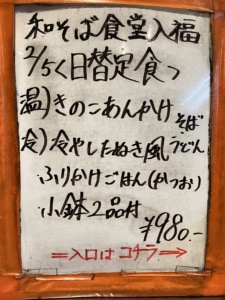 和そば食堂入福
2/5く日替定食っ
温)きのこあんかけそば
冷)冷やしたぬき風うどん
ふりかけごはん(かつお)
小鉢2品付
¥980.-
=入口はコチラ⇒